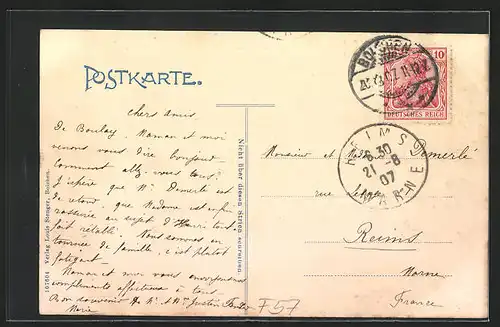 POSTKARTE.
chers amis
De Boulay, Maman et moi
venons vous dire bonjour.
Comment allez-vous tous?
J'espère que Mr Demerlé est
de retour, que Madame est
rassurée au sujet d'Henri tout-à-
fait rétabli. Nous sommes en
tournée de famille, c'est plutôt
fatigant.
Maman et moi vous envoyons nos
compliments affectueux à tous.
Bon souvenir à Mr & Mme Justin
Marie
167604 Verlag Louis Stenger, Bolchen.
Nicht über diesen Strich schreiben
BOLCHEN
10
DEUTSCHES REICH
REIMS
6·30
21-8
07
MARNE
Monsieur et Mme Demerlé
rue
Reims
Marne
France
F57